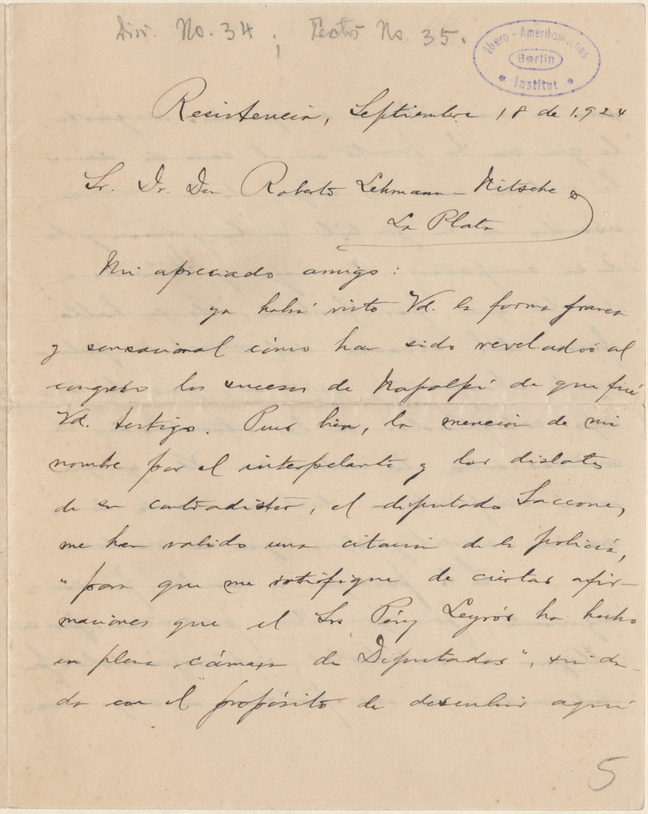 Div. No. 34 ; Teatro No 35.
Ibero-Amerikanisches
Berlin
Institut
Resistencia, Septiembre 18 de 1.924
Sr. Dr. Don Roberto Lehmann-Nitsche
La Plata
Mi apreciado amigo:
ya habrá visto Vd. la forma franca
y sensacional cómo han sido revelados al
congreso los sucesos de Napalpí de que fué
Vd. testigo. Pues bien, la mención de mi
nombre por el interpelante y los dislates
de su contradictor, el diputado Saccone,
me han valido una citación de la policía,
"para que me ratifique de ciertas afir-
maciones que el Sr. Pérez Leyrós ha hecho
en plena cámara de Diputados", sin du-
da con el propósito de descubrir aquí
5